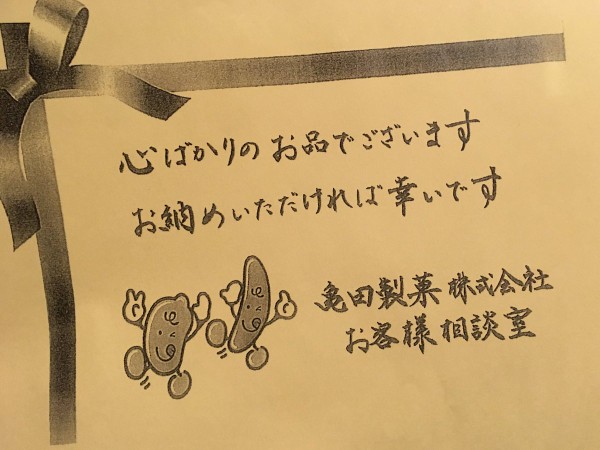 心ばかりのお品でございます
お納めいただければ幸いです
亀田製菓株式会社
お客様相談室